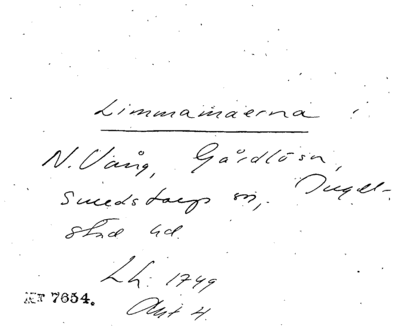 Limmamaerna
N. Vång, Gårdlösa,
Smedstorps sn, Ingel-
stad hd.
Lh. 1749
Akt 4.
NF 7654.